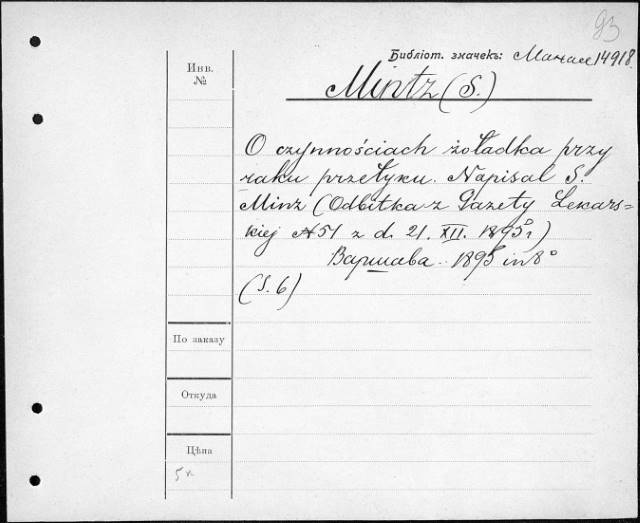 93
Библіот. значекъ: 14918.
Инв.
№
Mintz (S.)
O czynnościach żoładka przy
raku przełyku. Napisał S.
Minz (Odbitka z Gazety Lekars=
kiej №51 z d. 21. XII. 1895 r)
Варшава. 1895 in 8°
(S. 6)
По заказу
Откуда
Цѣна
5 к